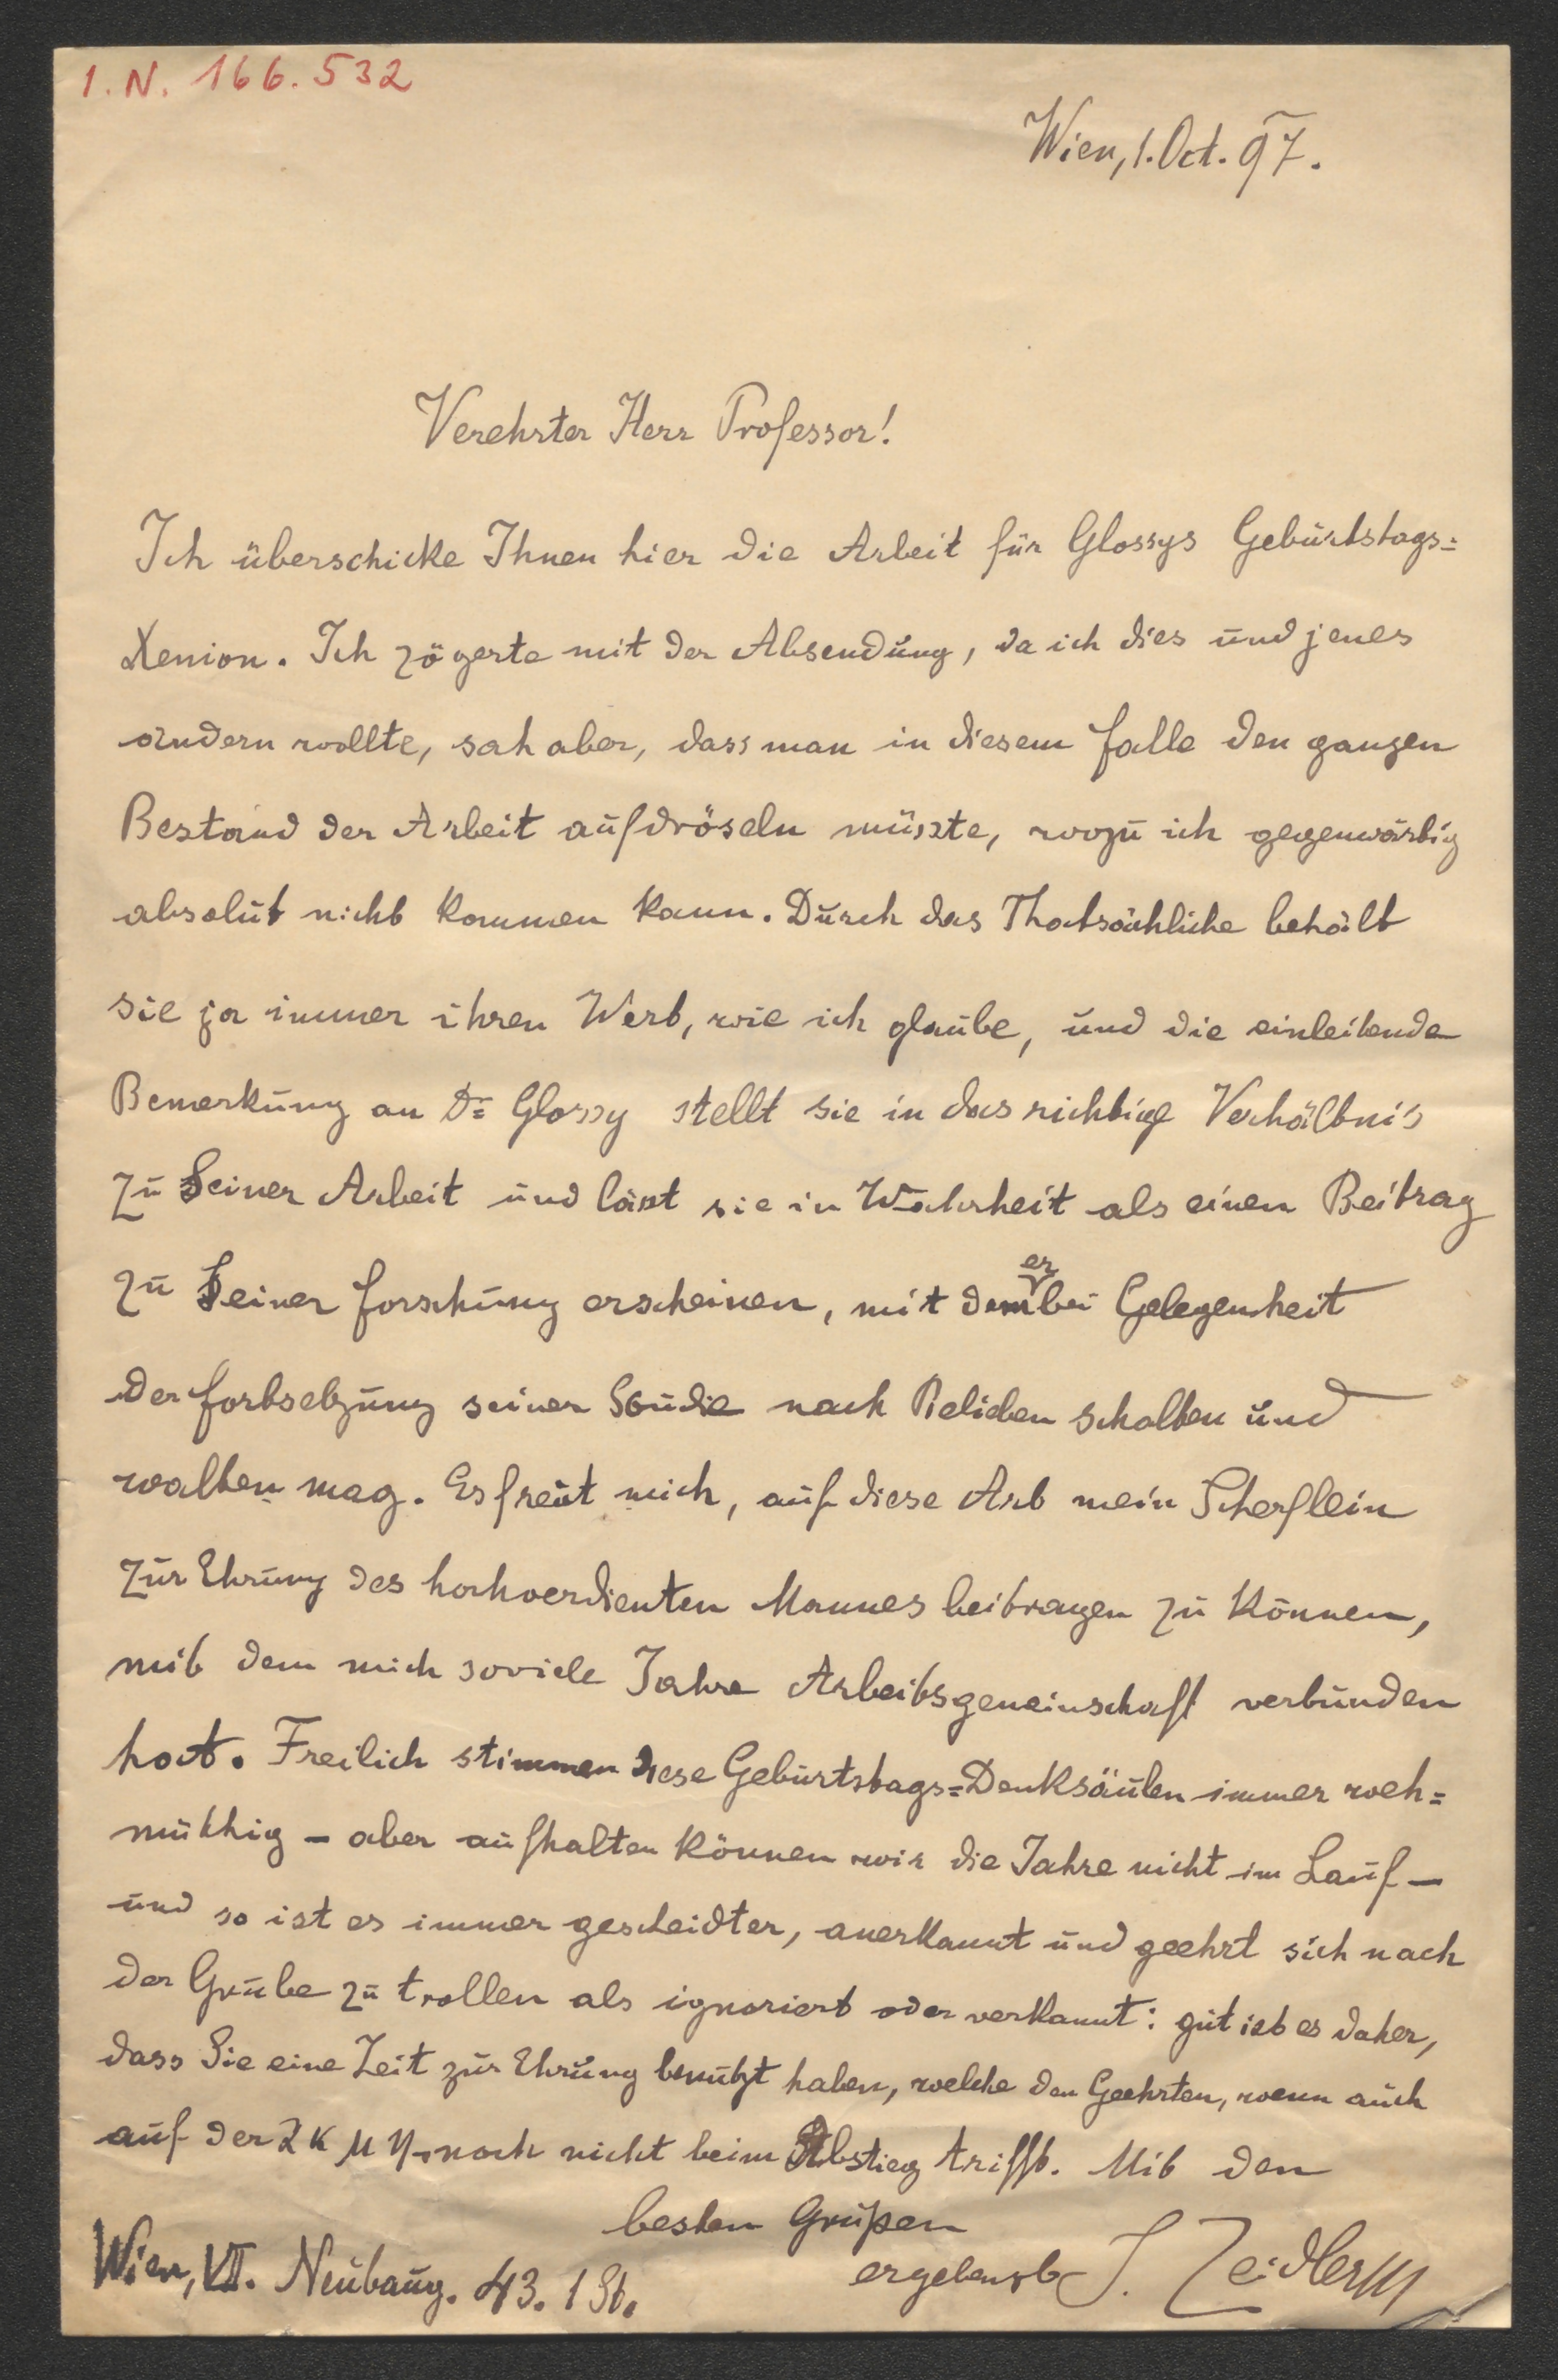 I. N. 166.532
Wien, 1. Oct. 97.
Verehrter Herr Professor!
Ich überschicke Ihnen hier die Arbeit für Glossys Geburtstags=
Xenion. Ich zögerte mit der Absendung, da ich dies und jenes
ändern wollte, sah aber, dass man in diesem Falle den ganzen
Bestand der Arbeit aufdröseln müsste, wozu ich gegenwärtig
absolut nicht kommen kann. Durch das Thatsächliche behält
sie ja immer ihren Wert, wie ich glaube, und die einleitende
Bemerkung an Dr Glossy stellt sie in das richtige Verhältnis
zu Seiner Arbeit und lässt sie in Wahrheit als einen Beitrag
zu Seiner Forschung erscheinen, mit dem er bei Gelegenheit
der Fortsetzung seiner Studie nach Belieben schalten und
walten mag. Es freut mich, auf diese Art mein Scherflein
zur Ehrung des hochverdienten Mannes beitragen zu können,
mit dem mich soviele Jahre Arbeitsgemeinschaft verbunden
hat. Freilich stimmen diese Geburtstags=Denksäulen immer weh=
müthig – aber aufhalten können wir die Jahre nicht im Lauf –
und so ist es immer gescheidter, anerkannt und geehrt sich nach
der Grube zu trollen als ignoriert oder verkannt: gut ist es daher,
dass Sie eine Zeit zur Ehrung benützt haben, welche den Geehrten, wenn auch
auf der noch nicht beim Abstieg trifft. Mit den
besten Grüßen
ergebenst J. Zeidler
Wien, VII. Neubaug. 43. 1 St.